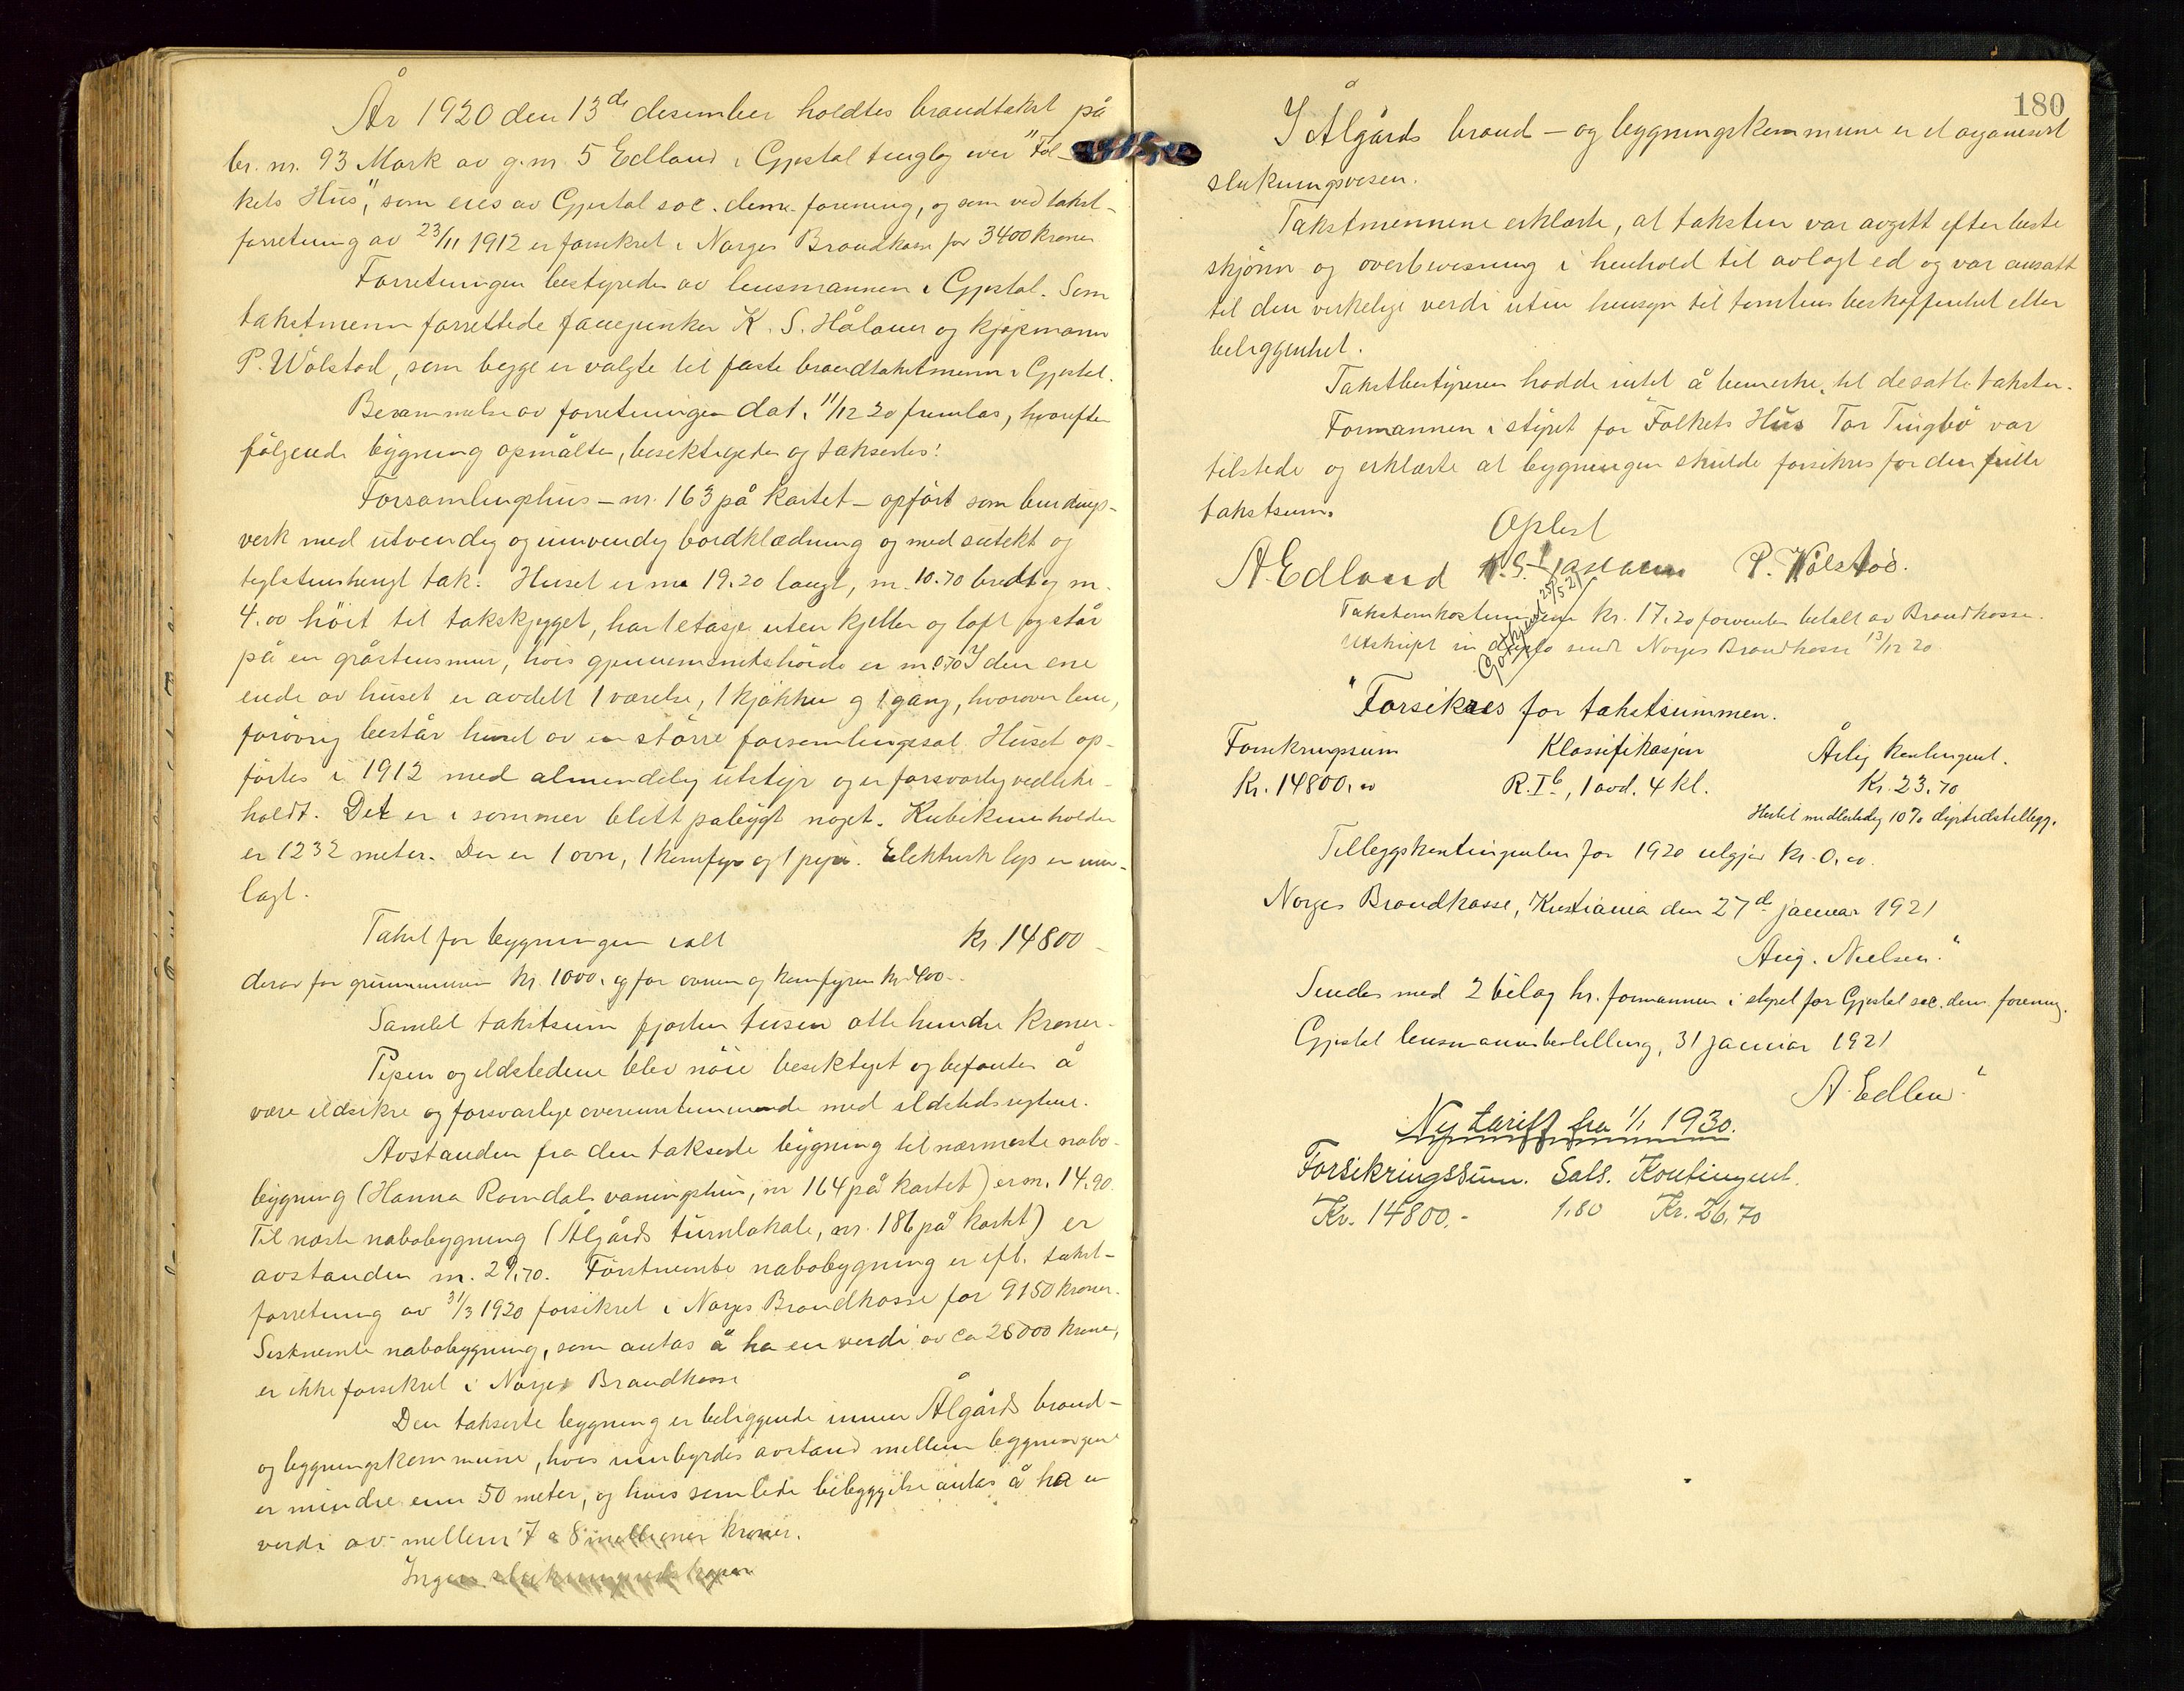 År 1920 den 13de desember holdtes brandtakst på
br. nr. 93 Mork av g.nr 5 Edland i Gjestal tinglag over "Fol-
kets Hus", som eies av Gjestal soc. dem. forening, og som ved takst-
forretning av 23/11 1912 er forsikret i Norges Brandkasse for 3400 kroner
Forretningen bestyredes av lensmannen i Gjestal. Som
takstmenn forrettede fanejunker K. S. Håland og kjøpmann
P. Wolstad, som begge er valgte til faste brandtakstmenn i Gjestal.
Berammelse av forretningen dat. 11/12 20 fremlas, hvorefter
følgende bygning opmåltes, besiktigedes og takseredes:
Forsamlingshus – nr. 163 på kartet – opført som bindings-
verk med utvendig og innvendig bordklædning og med sutekt og
teglstenshengt tak. Huset er m. 19.20 langt, m. 10.70 bredt og m.
4.00 höit til takskjegget, har 1 etasje uten kjeller og loft og står
på en gråstensmur, hvis gjennemsnitshöide er m 0.70 I den ene
ende av huset er avdelt 1 værelse, 1 kjøkken og 1 gang, hvorover lem,
forövrig består huset av en större forsamlingssal. Huset op-
førtes i 1912 med almindelig utstyr og er forsvarlig vedlike-
holdt. Det er i sommer blitt påbygt noget. Kubikinnholdet
er 1232 meter. Der er 1 ovn, 1 komfyr og 1 pipe. Elektrisk lys er inn-
lagt.
Takst for bygningen ialt kr. 14800 –
derav for grunnmuren kr. 1000. og for ovnen og komfyren kr 400.–
Samlet takstsum fjorten tusen otte hundre kroner.
Pipen og ildstedene blev nöie besiktiget og befantes å
være ildsikre og forsvarlige overensstemmende med ildstedsreglene.
Avstanden fra den takserte bygning til nærmeste nabo-
bygning (Hanna Romdals våningshus, nr 164 på kartet) er m. 14.90.
Til næste nabobygning (Ålgårds turnlokale, nr. 186 på kartet) er
avstanden m. 29.70. Förstnevnte nabobygning er ifl. takst-
forretning av 31/3 1920 forsikret i Norges Brandkasse for 9150 kroner.
Sistnevnte nabobygning, som antas å ha en verdi av ca 25000 kroner,
er ikke forsikret i Norges Brandkasse
Den takserte bygning er beliggende innen Ålgårds brand-
og bygningskommune, hvis innbyrdes avstand mellem bygningene
er mindre enn 50 meter, og hvis samlede bebyggelse antas å ha en
verdi av mellem 7 a 8 millioner kroner.
Ingen slukningsredskaper
180
I Ålgårds brand – og bygningskommune er et organisert
slukningsvesen.
Takstmennene erklærte, at taksten var avgitt efter beste
skjönn og overbevisning i henhold til avlagt ed og var ansatt
til den virkelige verdi uten hensyn til tomtens beskaffenhet eller
beliggenhet.
Takstbestyreren hadde intet å bemerke til de satte takster.
Formannen i styret for "Folkets Hus Tor Tingbö var
tilstede og erklærte at bygningen skulde forsikres for den fulle
takstsum.
Oplest
A. Edland K. S. Haaland P. Wolstad.
Takstomkostningene kr. 17.20 forventes betalt av Brandkassen.
Utskrift in duplo sendt Norges Brandkasse 13/12 20
Godkjend 25/5 21
"Forsikres for takstsummen.
Forsikringssum Klassifikasjon Årlig kontingent.
Kr. 14800.00 R. Ib, 1 avd. 4 kl. Kr. 23.70
Hertil midlertidig 10% dyrtidstillegg.
Tilleggskontingenten for 1920 utgjør Kr. 0.00.
Norges Brandkasse, Kristiania den 27de januar 1921
Aug. Nielsen."
Sendes med 2 bilag hr. formannen i styret for Gjestal soc. dem. forening.
Gjestal lensmannsbestilling, 31 januar 1921
A. Edland"
Ny tariff fra 1/1 1930.
Forsikringssum. Sats. Kontingent.
Kr. 14800.- 1,80 Kr. 26,70